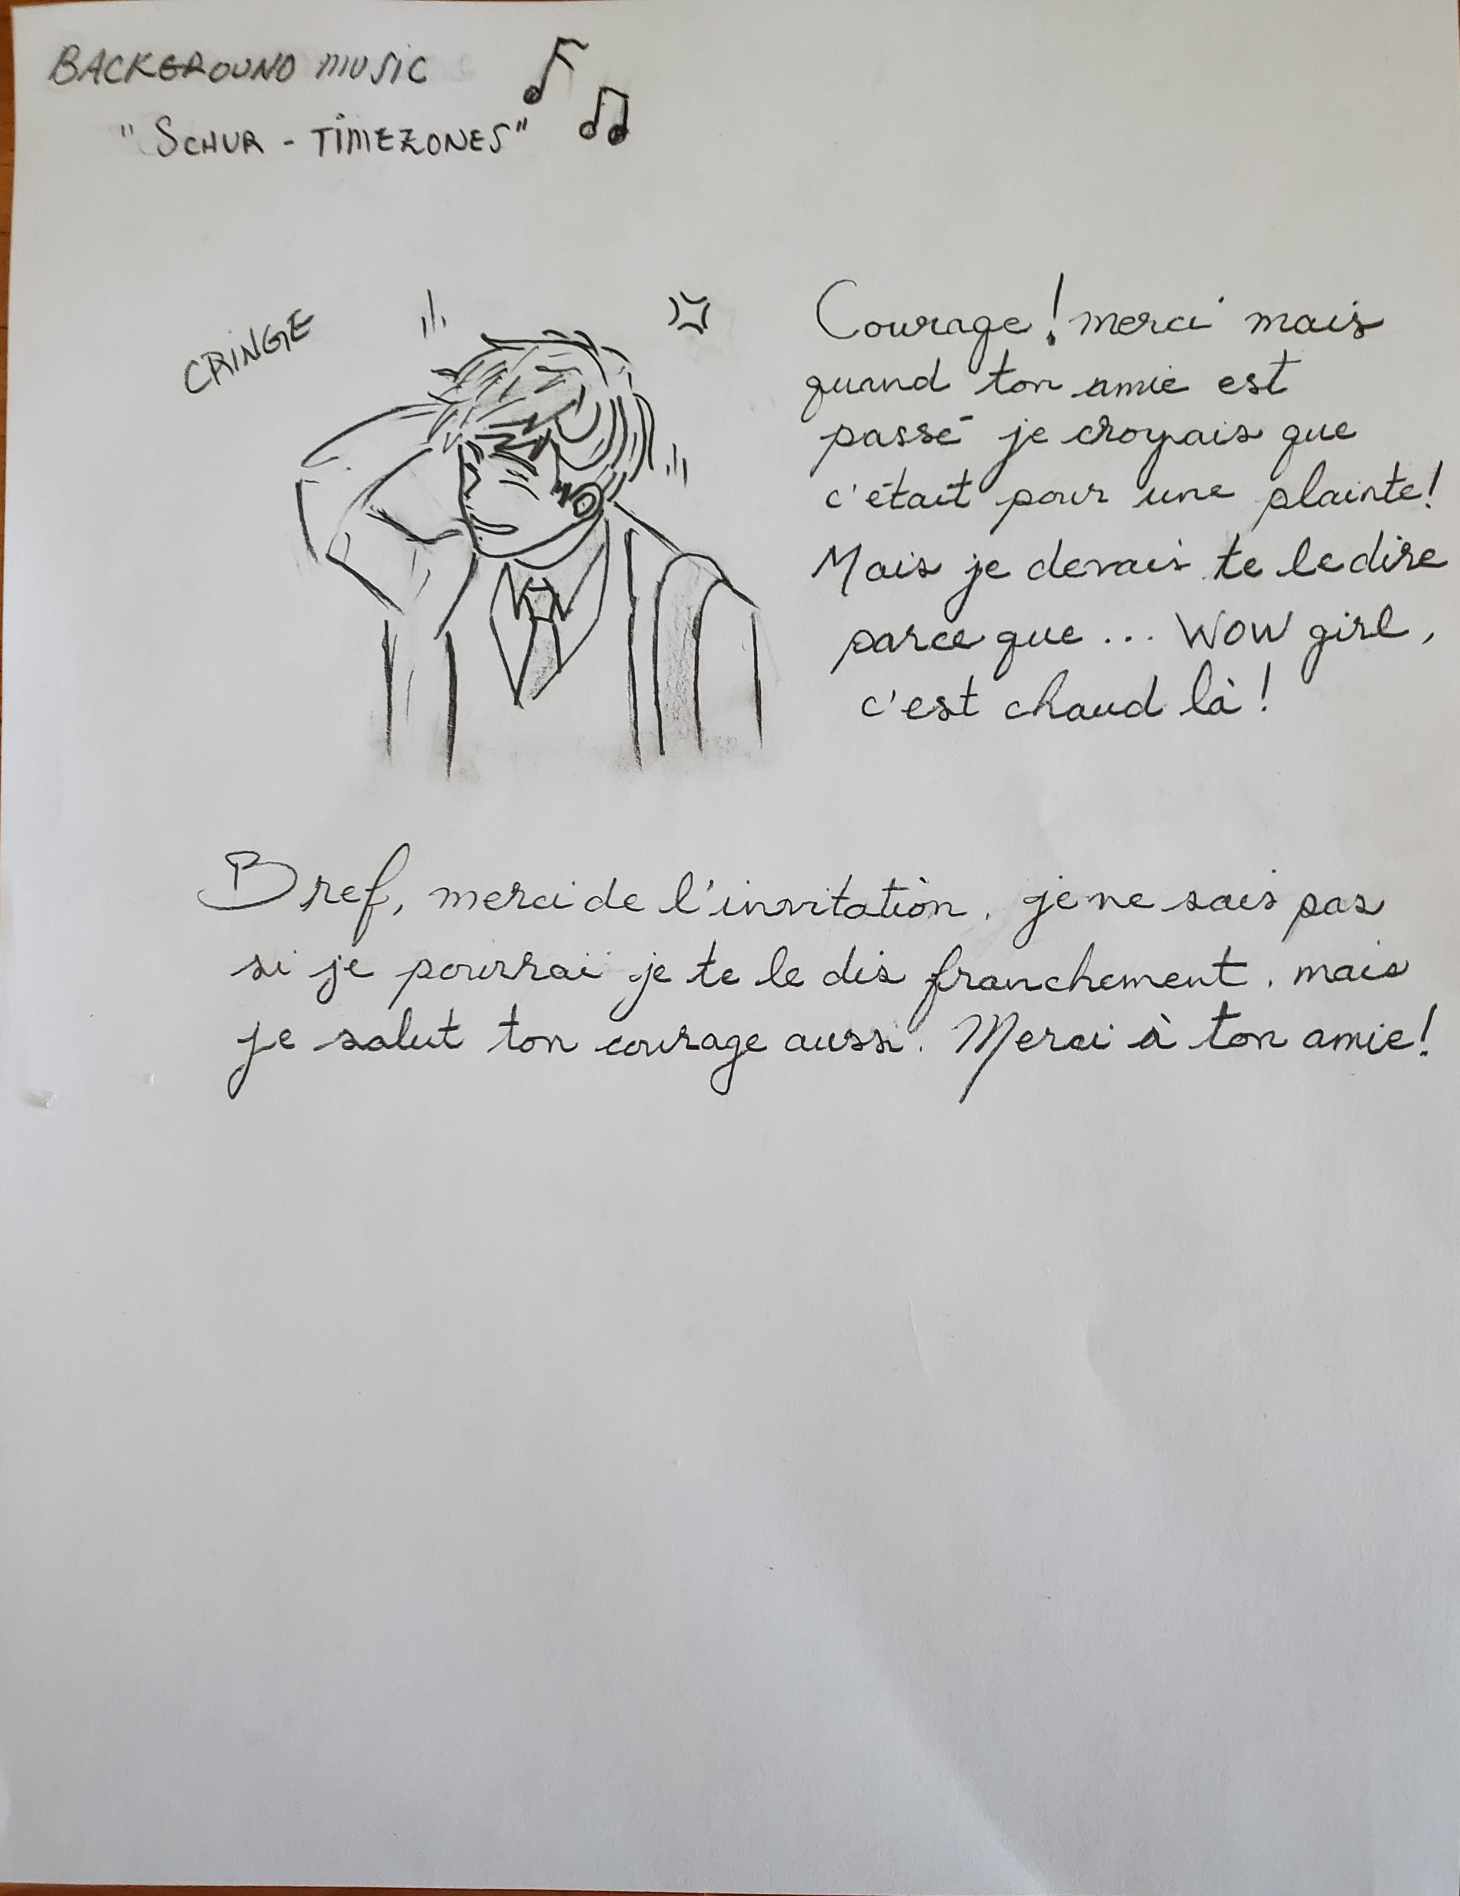 BACKGROUND MUSIC
"SCHUR - TIMEZONES"
CRINGE
Courage! merci mais
quand ton amie est
passé je croyais que
c'était pour une plainte!
Mais je devais te le dire
parce que... WOW girl,
c'est chaud là!
Bref, merci de l'invitation, je ne sais pas
si je pourrai je te le dis franchement, mais
je salut ton courage aussi. Merci à ton amie!